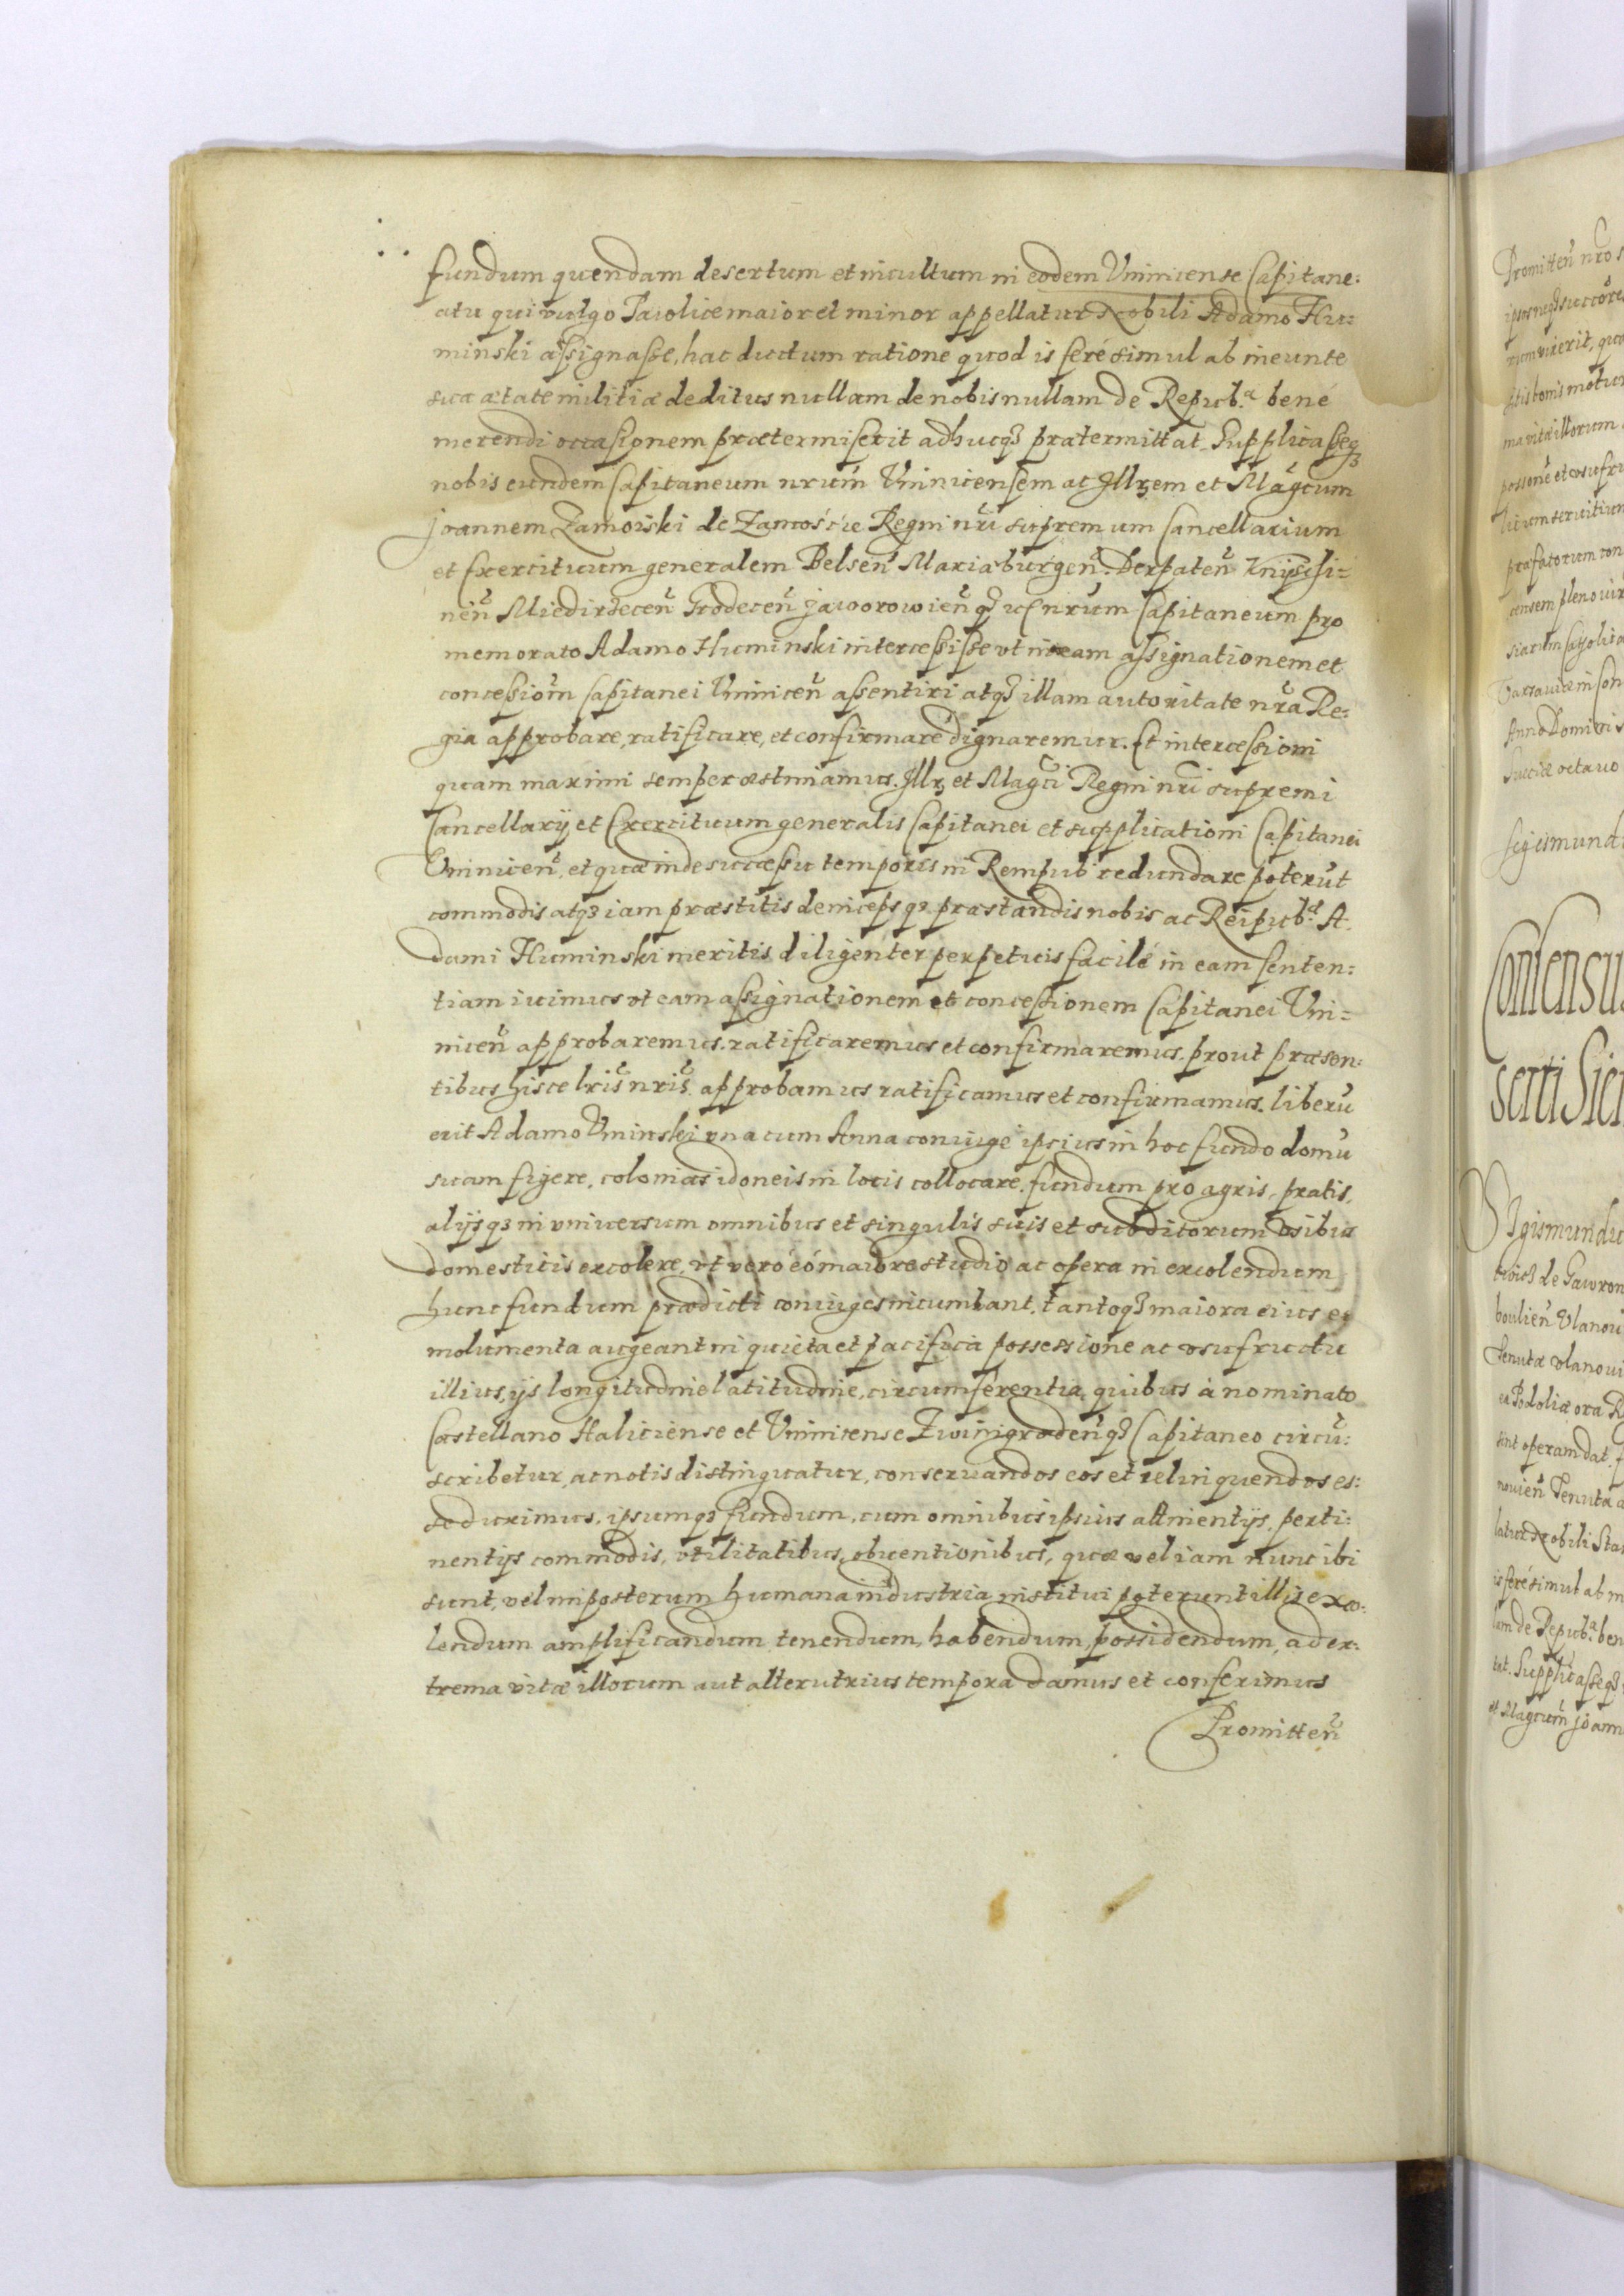 fundum quendam desertum et incultum in eodem Vninicense Capitane:
atu qui vulgo Jawolice maior et minor appellatur Nobili Adamo Hu:
minski assignasse, hac ductum ratione quod is feré simul ab ineunte
sua ætate militiæ deditus nullam de nobis nullam de Repub.ᵃ bené
merendi occasionem prætermiserit adhucq₃ prætermittat. Supplicasseq₃
nobis eundem Capitaneum nrum̃ Vninicensem ac Jllrem et Magcum̃
Joannem Zamoiski de Zamoście Regni nri̇̃ supremum Cancellarium
et Exercituum generalem Belseñ Mariaburgeñ. Derpateñ Knipschi=
neñ Miedirzeceñ Grodeceñ Jaworowieñ q₃ uc nrum̃ Capitaneum pro
memorato Adamo Huminski intercessisse vt in eam assignationem et
concessiom̃ Capitanei Vniniceñ assentiri atq₃ illam autoritate nr̃a Re:
gia approbare, ratificare, et confirmare dignaremur. Et intercessioni
quam maximi semper æstimamus. Jllr₃ et Magci̇̃ Regni nri̇̃ supremi
Cancellarij et Exercituum generalis Capitanei et supplicationi Capitanei
Vniniceñ, et quæ inde successu temporis in Rempub redundare poterũt
commodis atq₃ iam præstitis deincepsq₃ præstandis nobis ac Reipub.ᵃ A.
dami Huminski meritis diligenter perpetuis facilé in eam senten:
tiam iuimus vt eam assignationem et concessionem Capitanei Vni=
niceñ approbaremus. ratificaremus et confirmaremus. prout præsen:
tibus hisce lris̃ nris̃ approbamus ratificamus et confirmamus. liberũ
erit Adamo Vminski vna cum Anna coniuge ipsius in hoc fundo domũ
suam figere, colonias idoneis in locis collocare. fundum pro agris, pratis,
alijsq₃ in vniversum omnibus et singulis suis et subditorum vsibus
domesticis excolere, vt veró eó maiore studio ac opera in excolendum
hunc fundum prædicti coniuges incumbant. tantoq₃ maiora eius e:
molumenta augeant in quieta et pacifica possessione ac vsufructu
illius, ijs longitudine latitudine, circumferentia, quibus á nominato
Castellano Haliciense et Vninicense Zwinigrodeñq₃ Capitaneo circũ:
scribetur, ac notis distinguatur, conseruandos eos et relinquendos es:
se duximus, ipsumq₃ fundum, cum omnibus ipsius attinentijs, perti:
nentijs commodis, vtilitatibus, obuentionibus, quæ vel iam nunc ibi
sunt, vel in posterum humana industria institui poterunt illis exco:
lendum amplificandum tenendum, habendum, possidendum, ad ex:
trema vitæ illorum aut alterutrius tempora damus et conferimus
Promitteñ
Promitteñ nros
possoné et vsufru
Varsauiæ in Con
Anno Domini
Sueciæ octauo
Sigismund
Consensu
Sigismundu